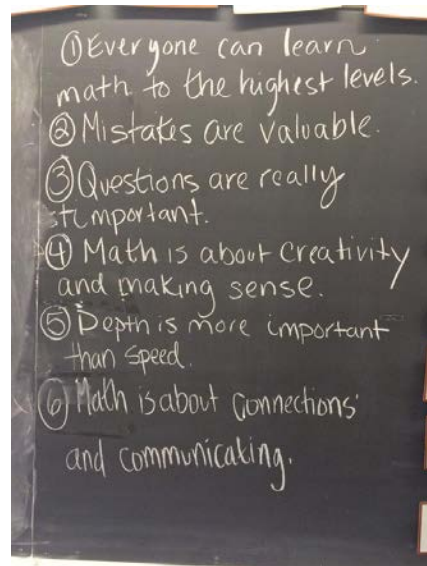 ① Everyone can learn
math to the highest levels.
② Mistakes are valuable.
③ Questions are really
important.
④ Math is about creativity
and making sense.
⑤ Depth is more important
than speed.
⑥ Math is about connections
and communicating.